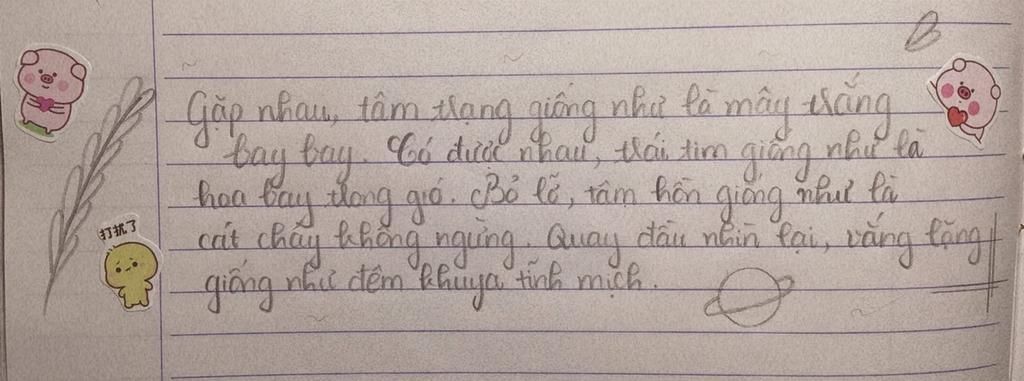 Gặp nhau, tâm trạng giống như là mây trắng
bay bay. Có được nhau, trái tim giống như là
hoa bay trong gió. Bỏ lỡ, tâm hồn giống như là
cát chảy không ngừng. Quay đầu nhìn lại, vắng lặng
giống như đêm khuya tĩnh mịch.
打扰了